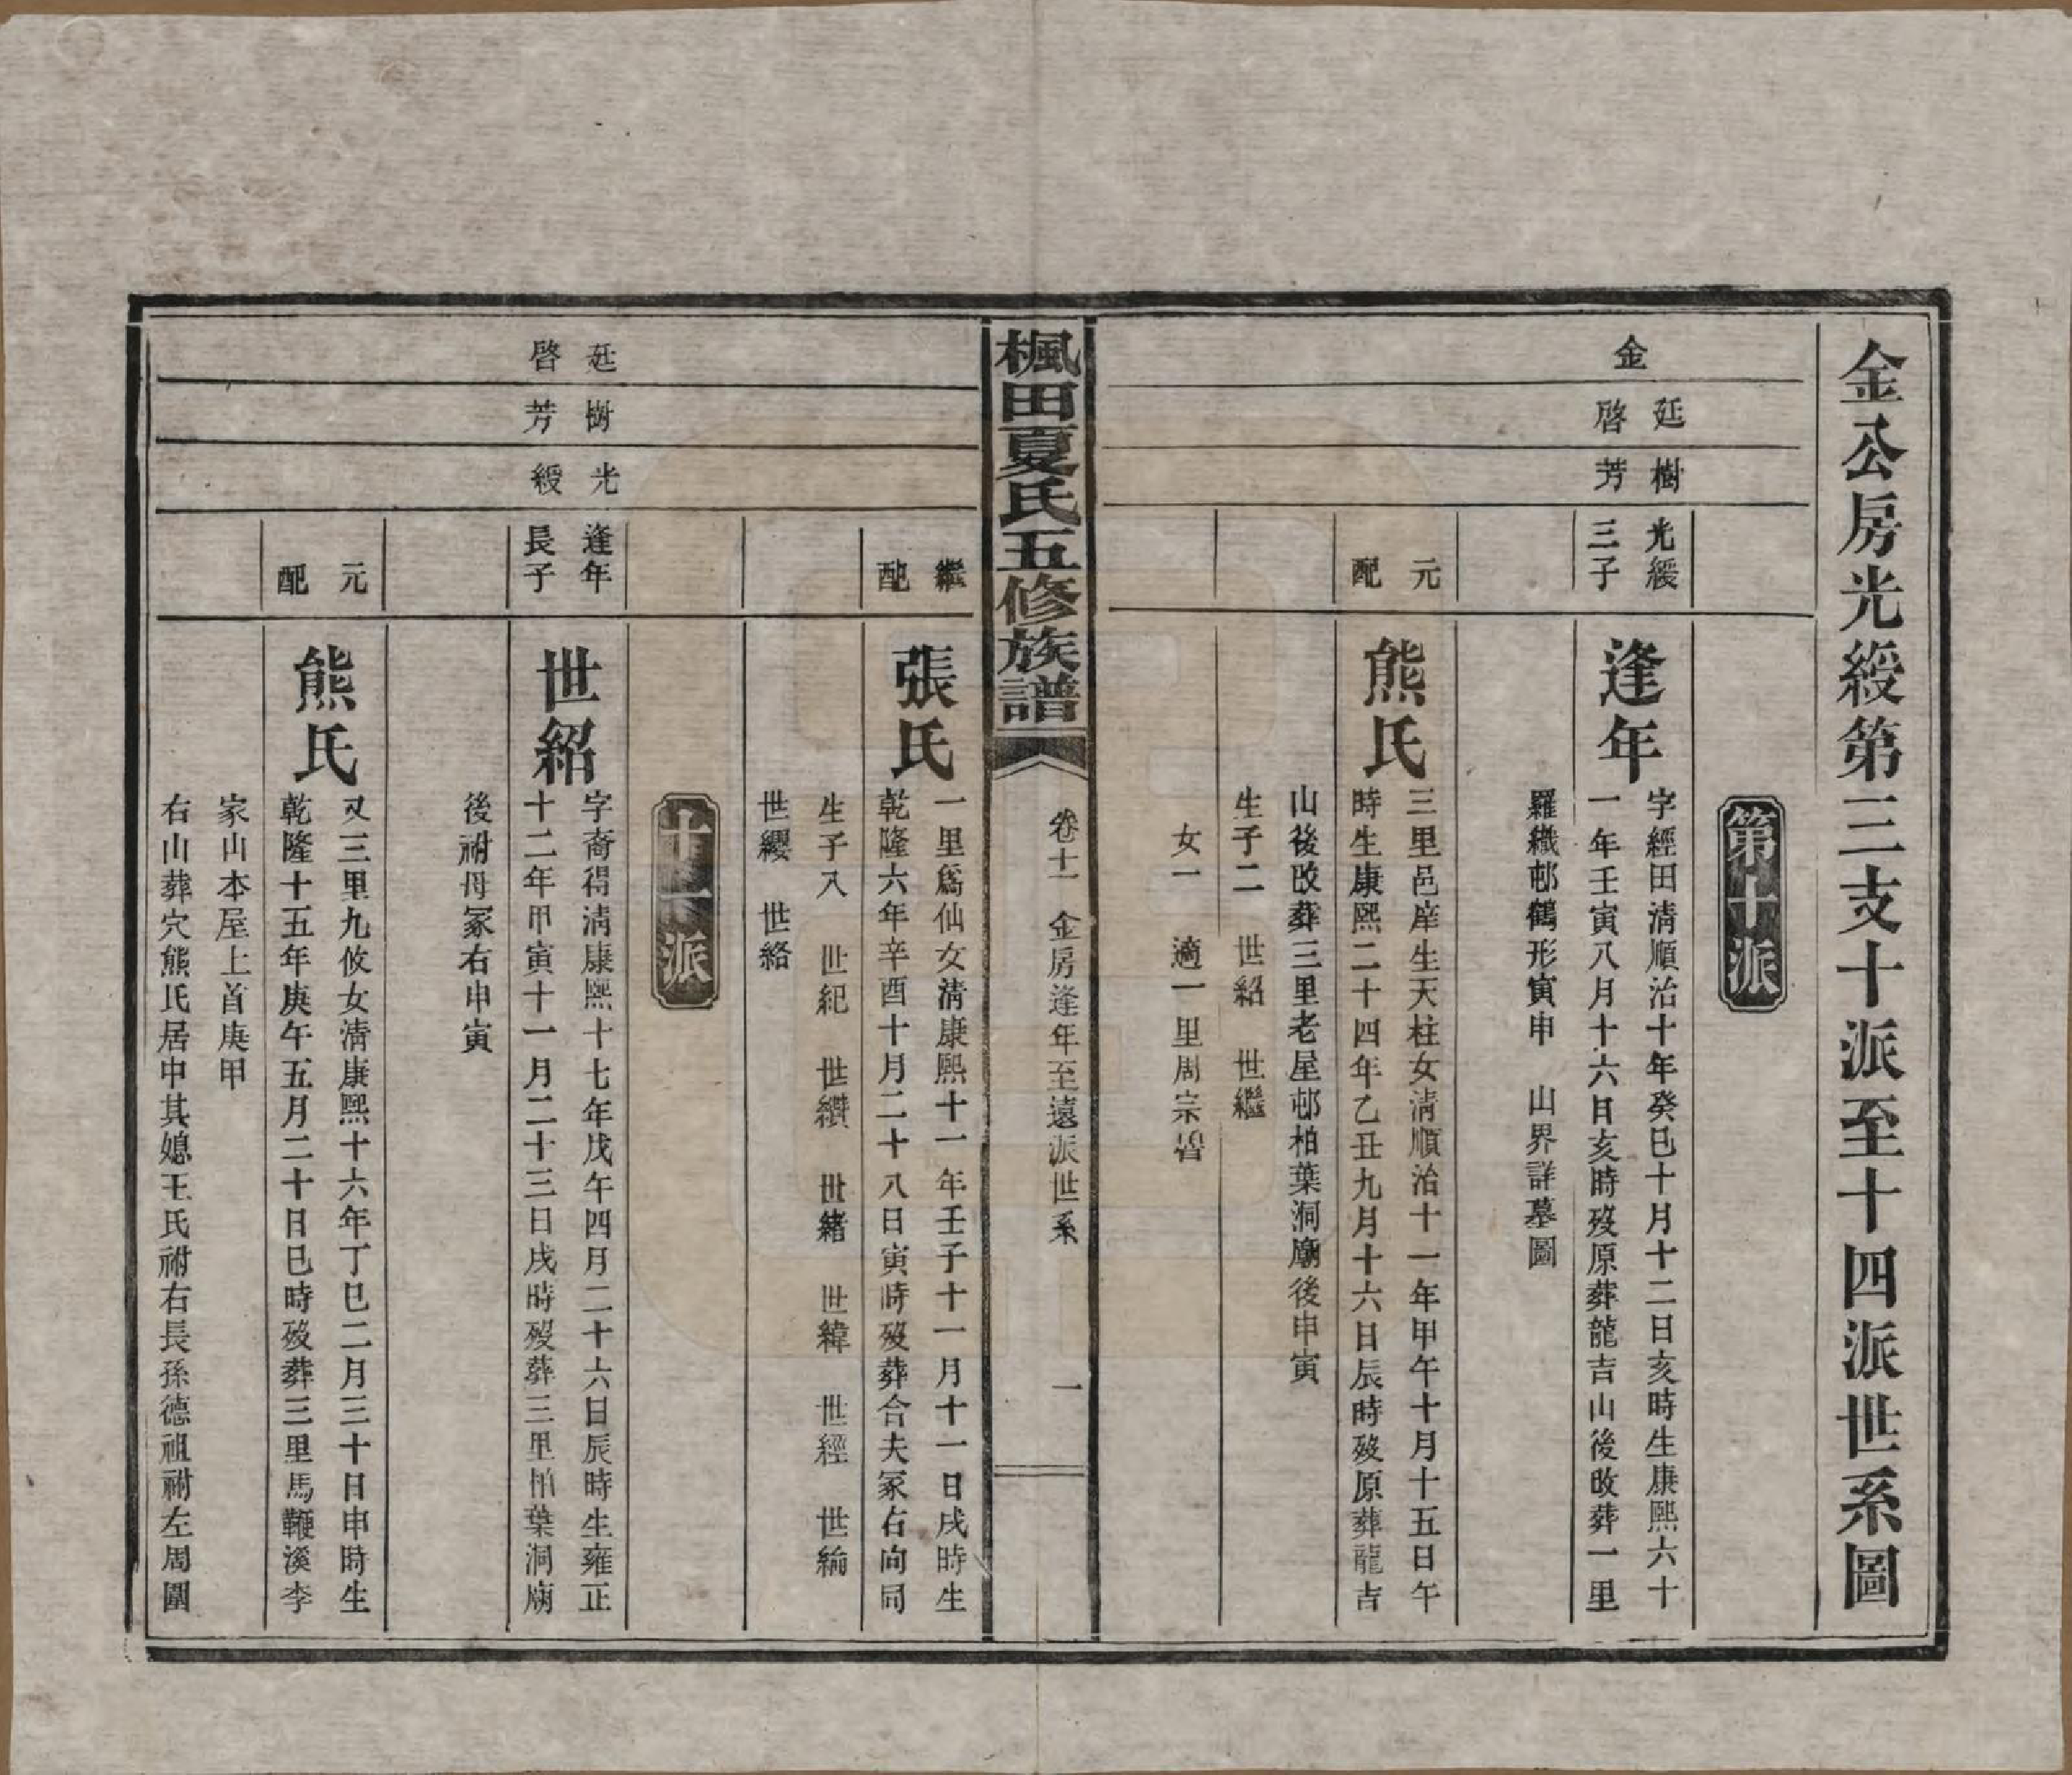 金公房光綬第三支十派至十四派世系圖
第十派
金
廷啓
樹芳
光綬三子
逢年
字經田清順治十年癸巳十月十二日亥時生康熙六十
一年壬寅八月十六日亥時歿原葬龍吉山後改葬一里
羅織邨鶴形寅申　山界詳墓圖
元配
熊氏
三里邑庠生天柱女清順治十一年甲午十月十五日午
時生康熙二十四年乙丑九月十六日辰時歿原葬龍吉
山後改葬三里老屋邨柏葉洞廟後申寅
生子二　世紹　世繼
女一　適一里周宗
楓田夏氏五修族譜
卷十一　金房逢年至遠派世系
一
繼配
張氏
一里爲仙女清康熙十一年壬子十一月十一日戌時生
乾隆六年辛酉十月二十八日寅時歿葬合夫冢右向同
生子八　世紀　世纘　世緒　世緯　世經　世綸
世纓　世絡
十一派
廷啓
樹芳
光綬
逢年長子
世紹
字裔得清康熙十七年戊午四月二十六日辰時生雍正
十二年甲寅十一月二十三日戌時歿葬三里柏葉洞廟
後祔母冢右申寅
元配
熊氏
又三里九攸女清康熙十六年丁巳二月三十日申時生
乾隆十五年庚午五月二十日巳時歿葬三里馬鞭溪李
家山本屋上首庚甲
右山葬穴熊氏居中其媳王氏祔右長孫德祖祔左周圍